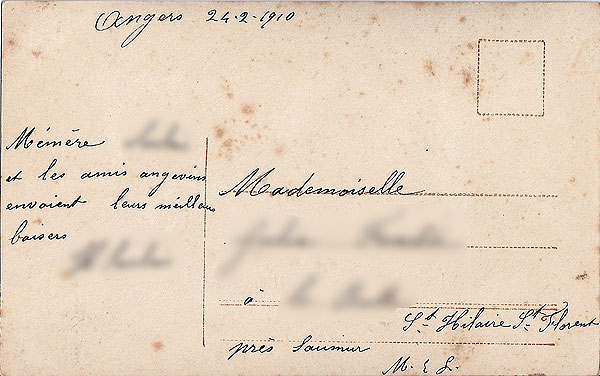 Angers 24-2-1910
Mémère
et les amis angevins
envoient leurs meilleurs
baisers
Mademoiselle
à
St Hilaire St Florent
près Saumur
M. & L.